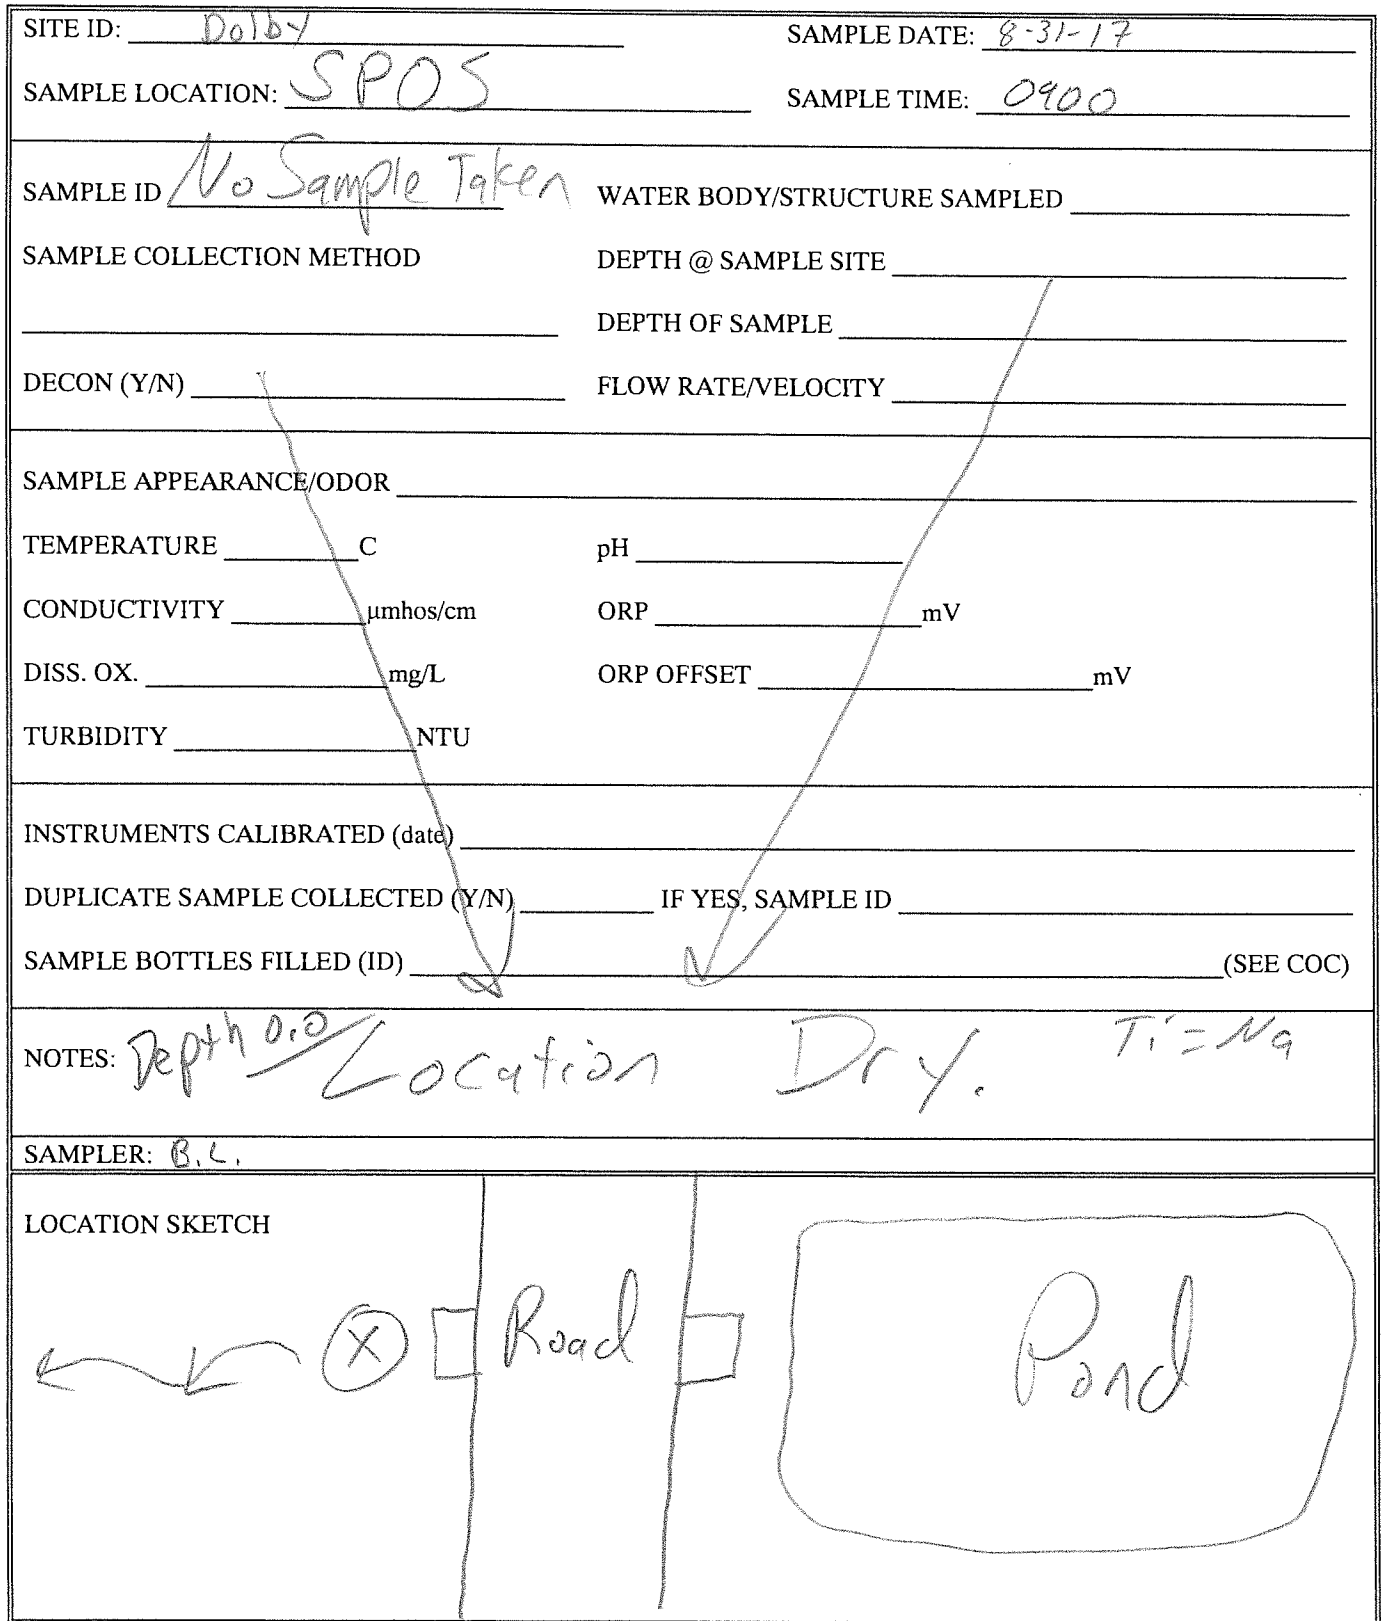 SITE ID: Dolby SAMPLE DATE: 8-31-17
SAMPLE LOCATION: SPOS SAMPLE TIME: 0900
SAMPLE ID No Sample Taken WATER BODY/STRUCTURE SAMPLED
SAMPLE COLLECTION METHOD DEPTH @ SAMPLE SITE
DEPTH OF SAMPLE
DECON (Y/N) FLOW RATE/VELOCITY
SAMPLE APPEARANCE/ODOR
TEMPERATURE C pH
CONDUCTIVITY µmhos/cm ORP mV
DISS. OX. mg/L ORP OFFSET mV
TURBIDITY NTU
INSTRUMENTS CALIBRATED (date)
DUPLICATE SAMPLE COLLECTED (Y/N) IF YES, SAMPLE ID
SAMPLE BOTTLES FILLED (ID) (SEE COC)
NOTES: Depth 0.0 / Location Dry. Ti = Na
SAMPLER: B.L.
LOCATION SKETCH
X Road Pond